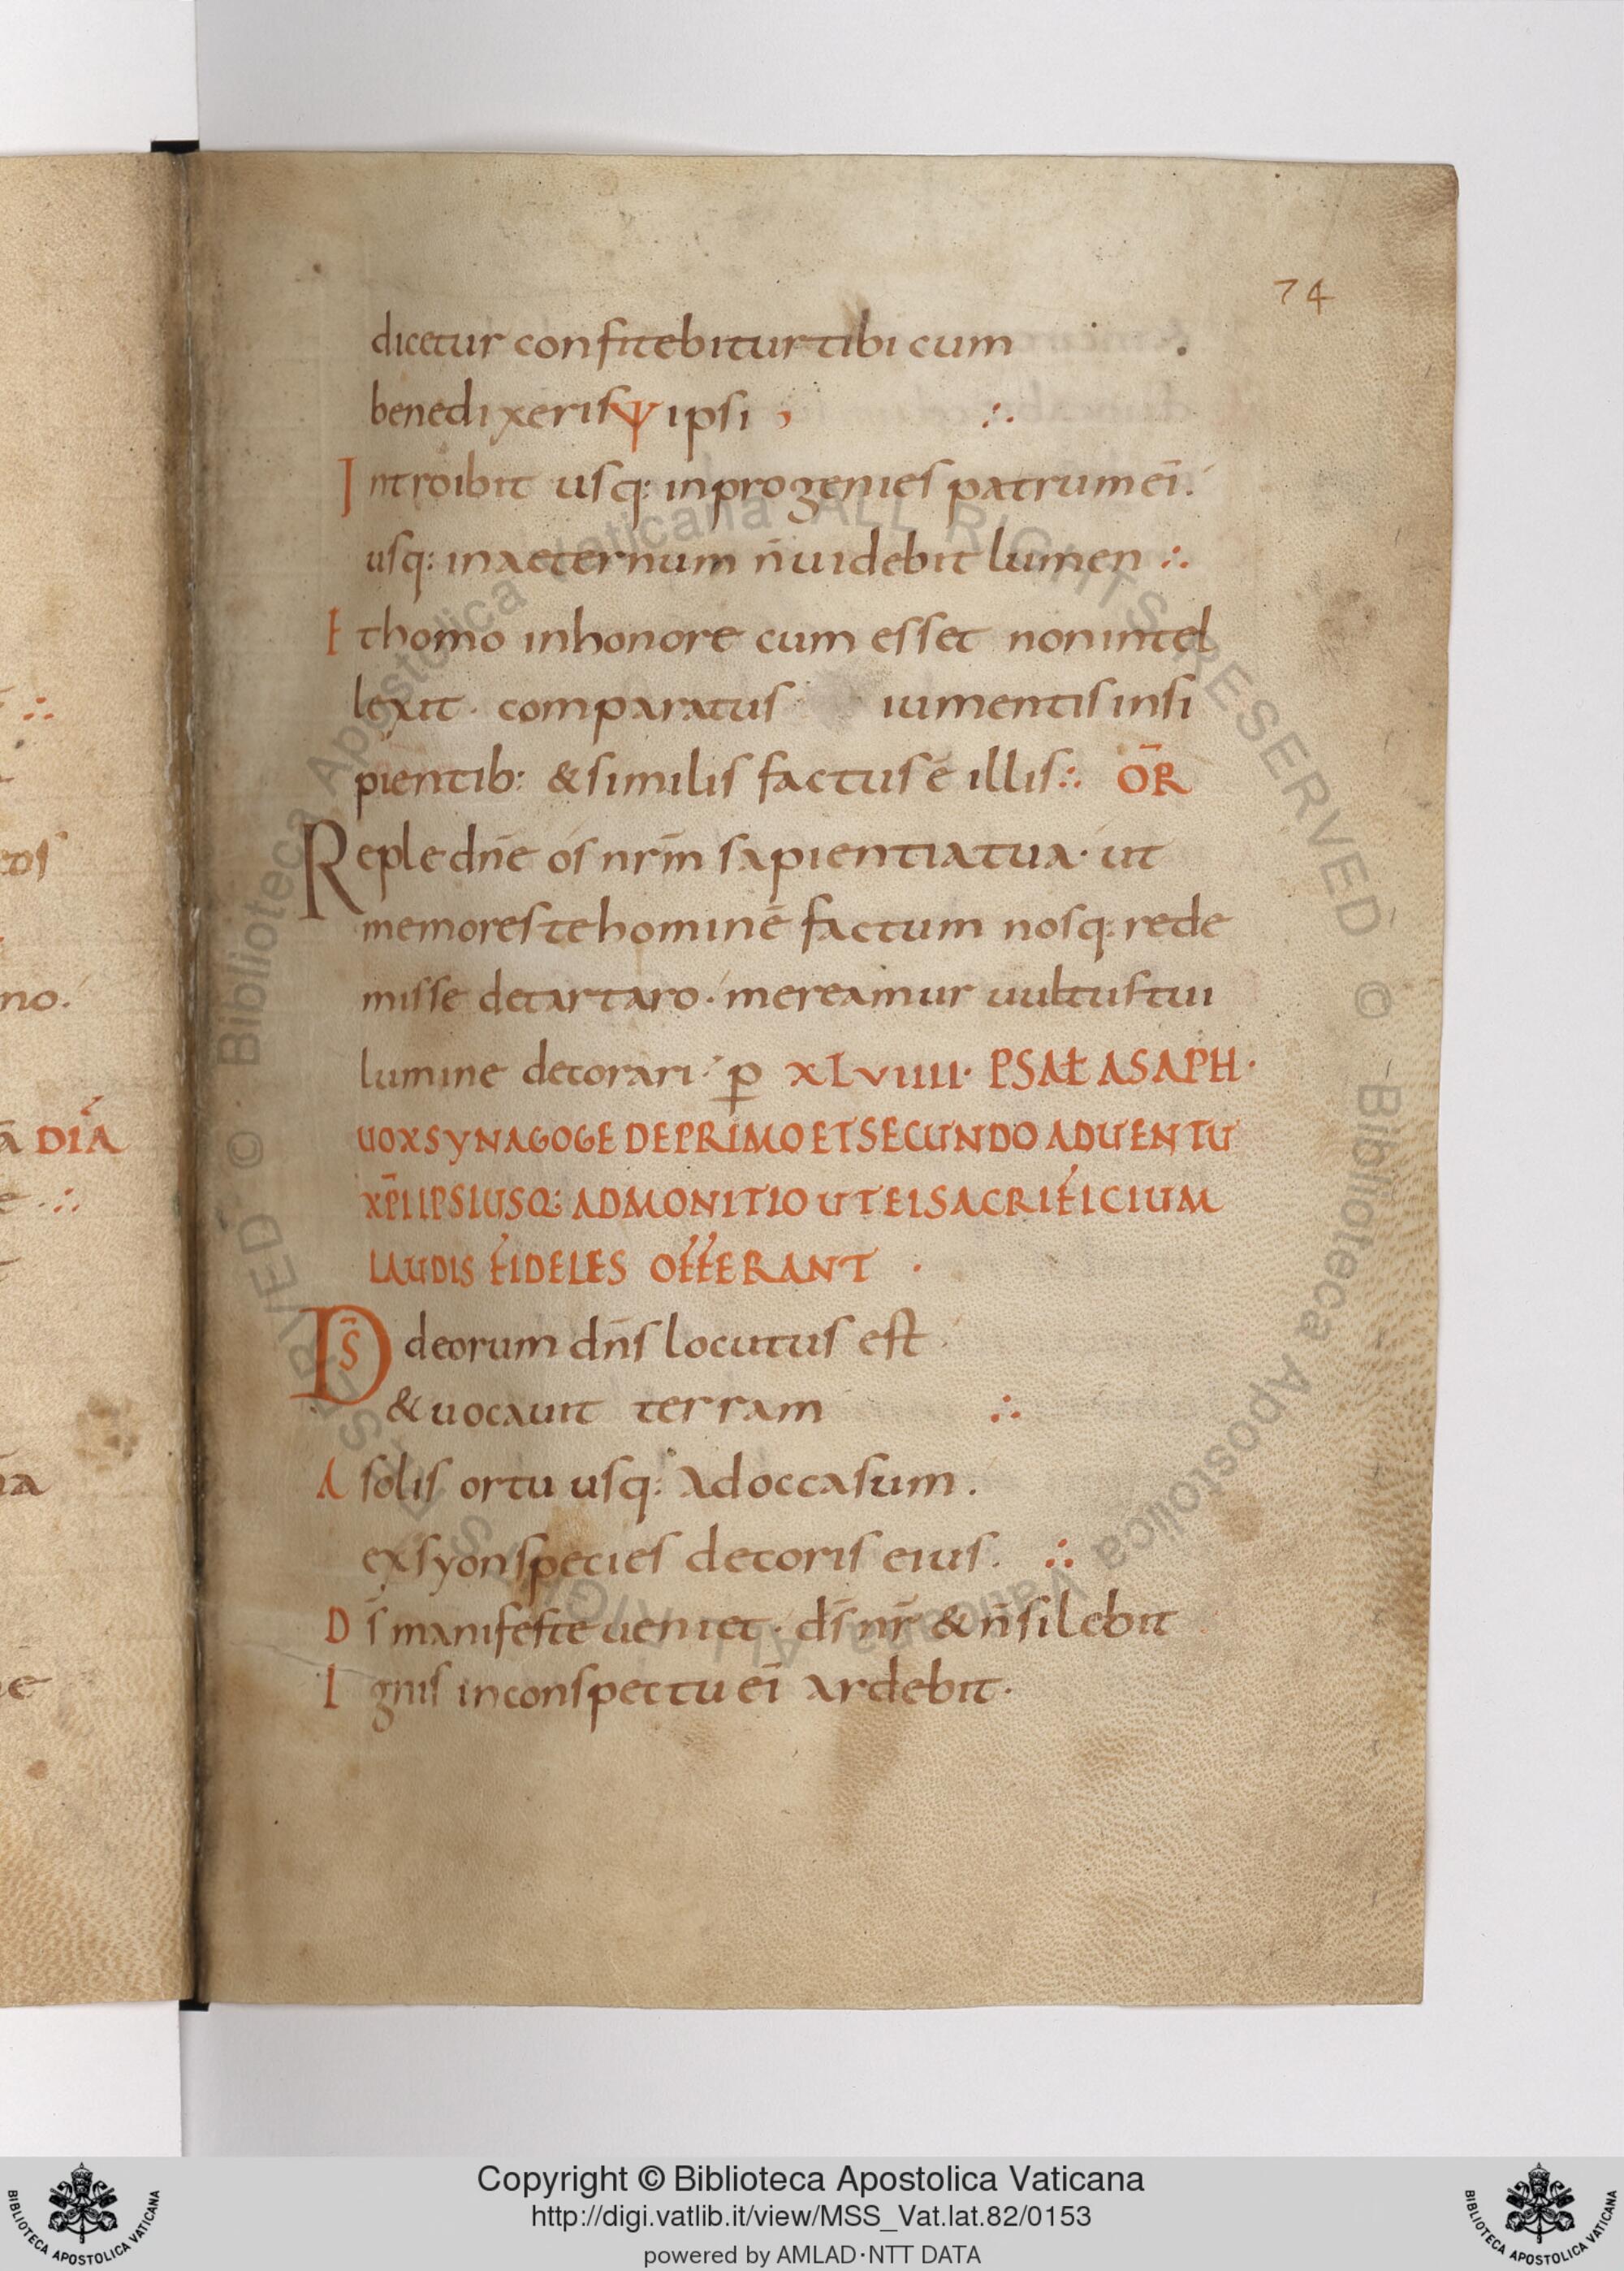 74
dicetur confitebitur tibi cum
benedixeris ψ ipsi
Introibit usq: inprogenies patrum ei͞.
usq: inaeternum n̄ uidebit lumen ∴
Et homo inhonore cum esset non intel
lexit · comparatus iumentis insi
pientib: & similis factus ē illis ∴ OR̄
Reple dn̄e os nrm̄ sapientia tua · ut
memores te hominē factum nosq: rede
misse detartaro · mereamur uultus tui
lumine decorari · p XLVIIII · PSAŁ ASAPH ·
UOX SYNAGOGE DE PRIMO ET SECUNDO ADUENTU
XP̄I IPSIUSQ: ADMONITIO UT EI SACRIFICIUM
LAUDIS FIDELES OFFERANT ·
DS̄ deorum dn̄s locutus est
& uocauit terram ∴
A solis ortu usq: ad occasum .
ex syon species decoris eius . ∴
Ds̄ manifeste ueniet · ds̄ nr̄ & n̄ silebit
Ignis in conspectu ei͞ ardebit ·
ꞇos
no.
ā DIĀ
e ∴
na
e
© Biblioteca Apostolica Vaticana ALL RIGHTS RESERVED © Biblioteca Apostolica Vaticana ALL RIGHTS RESERVED
Copyright © Biblioteca Apostolica Vaticana
http://digi.vatlib.it/view/MSS_Vat.lat.82/0153
powered by AMLAD·NTT DATA
BIBLIOTECA APOSTOLICA VATICANA
BIBLIOTECA APOSTOLICA VATICANA